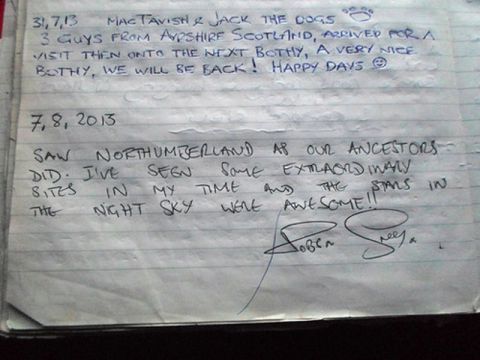 31,7,13 MACTAVISH & JACK THE DOGS
3 GUYS FROM AYRSHIRE SCOTLAND, ARRIVED FOR A
VISIT THEN ONTO THE NEXT BOTHY, A VERY NICE
BOTHY, WE WILL BE BACK! HAPPY DAYS ☺
7, 8, 2013
SAW NORTHUMBERLAND AS OUR ANCESTORS
DID. I'VE SEEN SOME EXTRAORDINARY
SITES IN MY TIME AND THE STARS IN
THE NIGHT SKY WERE AWESOME!!